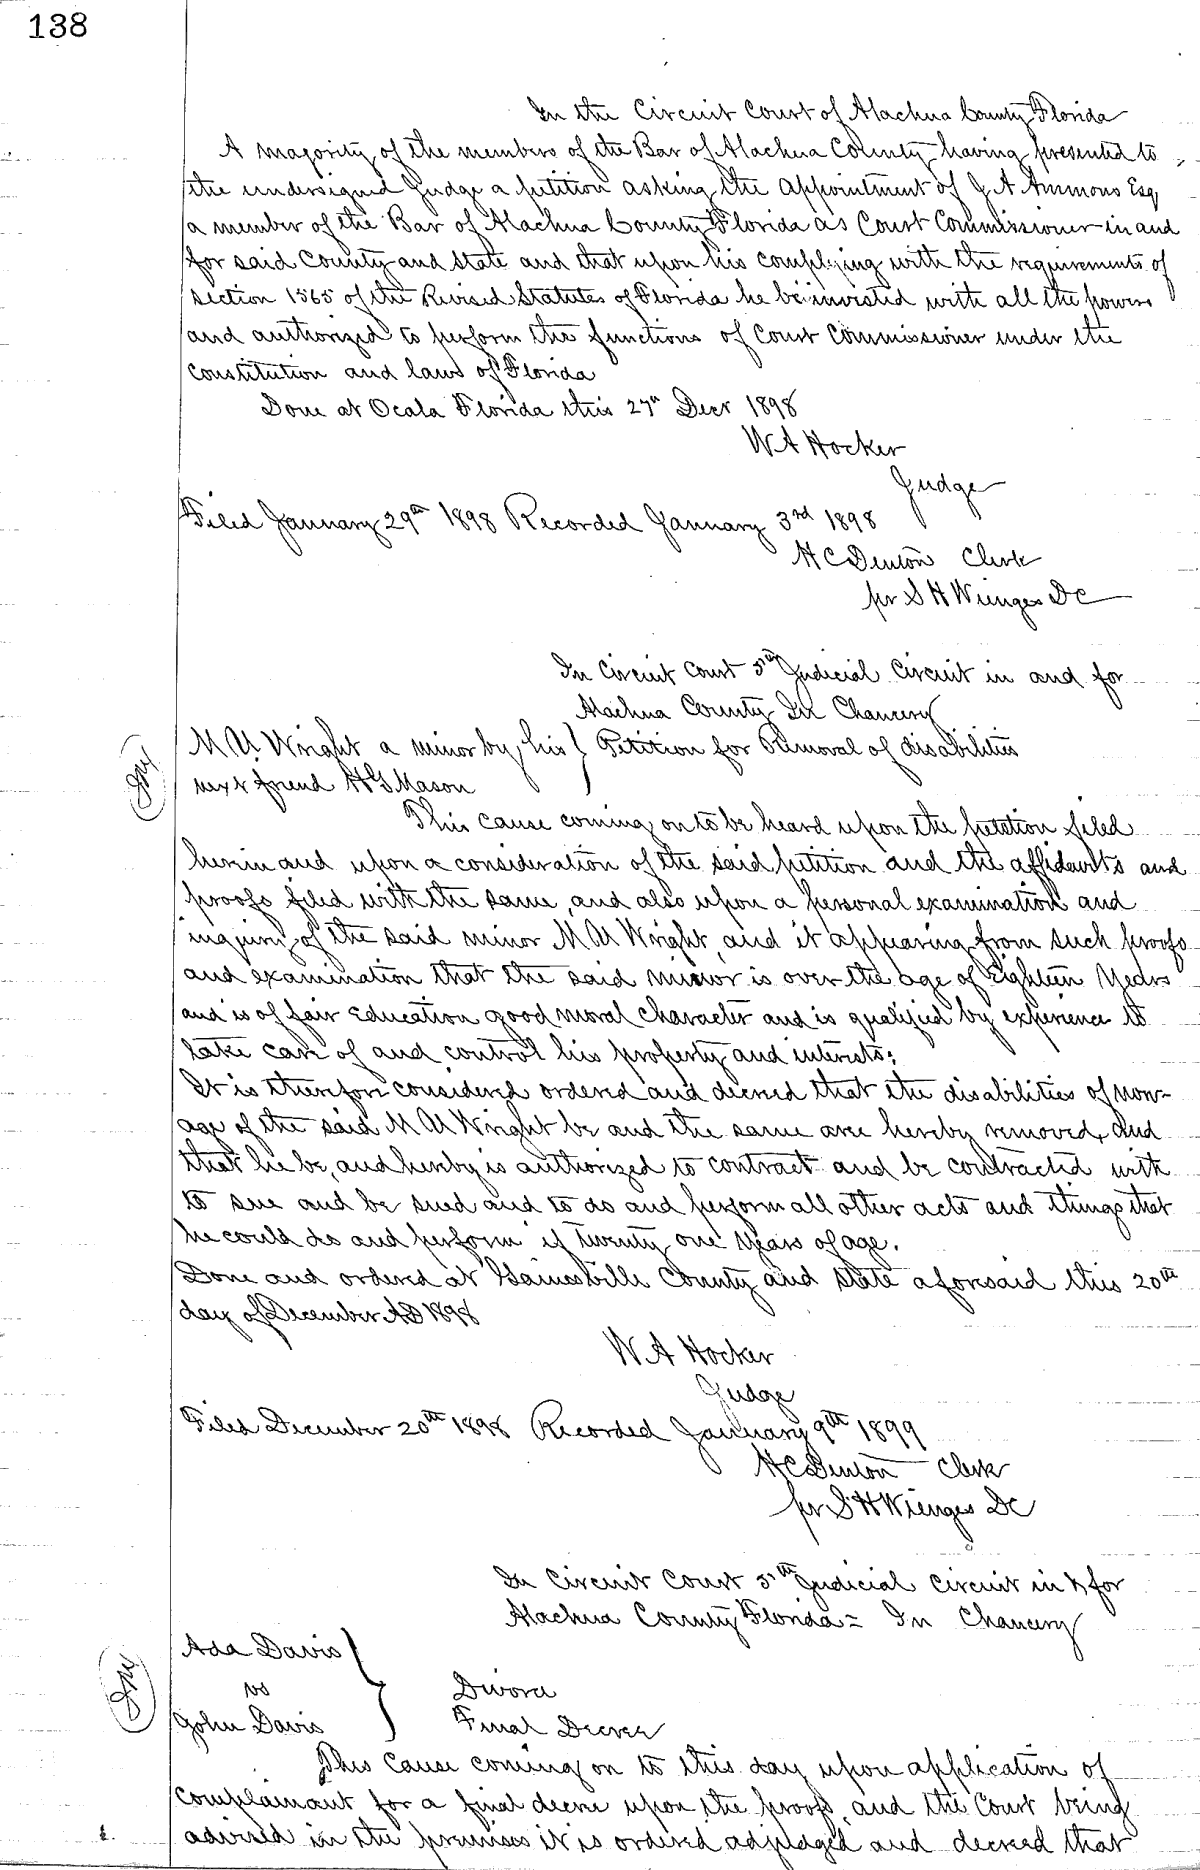 138
In the Circuit Court of Alachua County Florida
A majority of the members of the Bar of Alachua County having presented to
the undersigned Judge a petition asking the appointment of J A Ammons Esq
a member of the Bar of Alachua County Florida as Court Commissioner in and
for said County and State and that upon his complying with the requirements of
section 1565 of the Revised Statutes of Florida he be invested with all the powers
and authorized to perform the functions of Court Commissioner under the
constitution and laws of Florida
Done at Ocala Florida this 27th Decr 1898
W A Hocker
Judge
Filed January 29th 1898 Recorded January 3rd 1898
H C Denton Clerk
pr S H Wienges DC
In Circuit Court 5th Judicial Circuit in and for
Alachua County In Chancery
M U Wright a minor by his } Petition for Removal of disabilities
next friend H G Mason
This cause coming on to be heard upon the petition filed
herein and upon a consideration of the said petition and the affidavits and
proofs filed with the same, and also upon a personal examination and
inquiry of the said minor M U Wright, and it appearing from such proofs
and examination that the said minor is over the age of Eighteen Years
and is of fair Education good moral character and is qualified by experience to
take care of and control his property and interests;
It is therefore considered ordered and decreed that the disabilities of non-
age of the said M U Wright be and the same are hereby removed, and
that he be, and hereby is authorized to contract and be contracted with
to sue and be sued and to do and perform all other acts and things that
he could do and perform if twenty one years of age.
Done and ordered at Gainesville County and State aforesaid this 20th
day of December AD 1898
W A Hocker
Judge
Filed December 20th 1898 Recorded January 9th 1899
H C Denton Clerk
pr S H Wienges DC
In Circuit Court 5th Judicial Circuit in & for
Alachua County Florida = In Chancery
Ada Davis
vs Divorce
John Davis Final Decree
This Cause coming on to this day upon application of
complainant for a final decree upon the proofs, and the Court being
advised in the premises it is ordered adjudged and decreed that